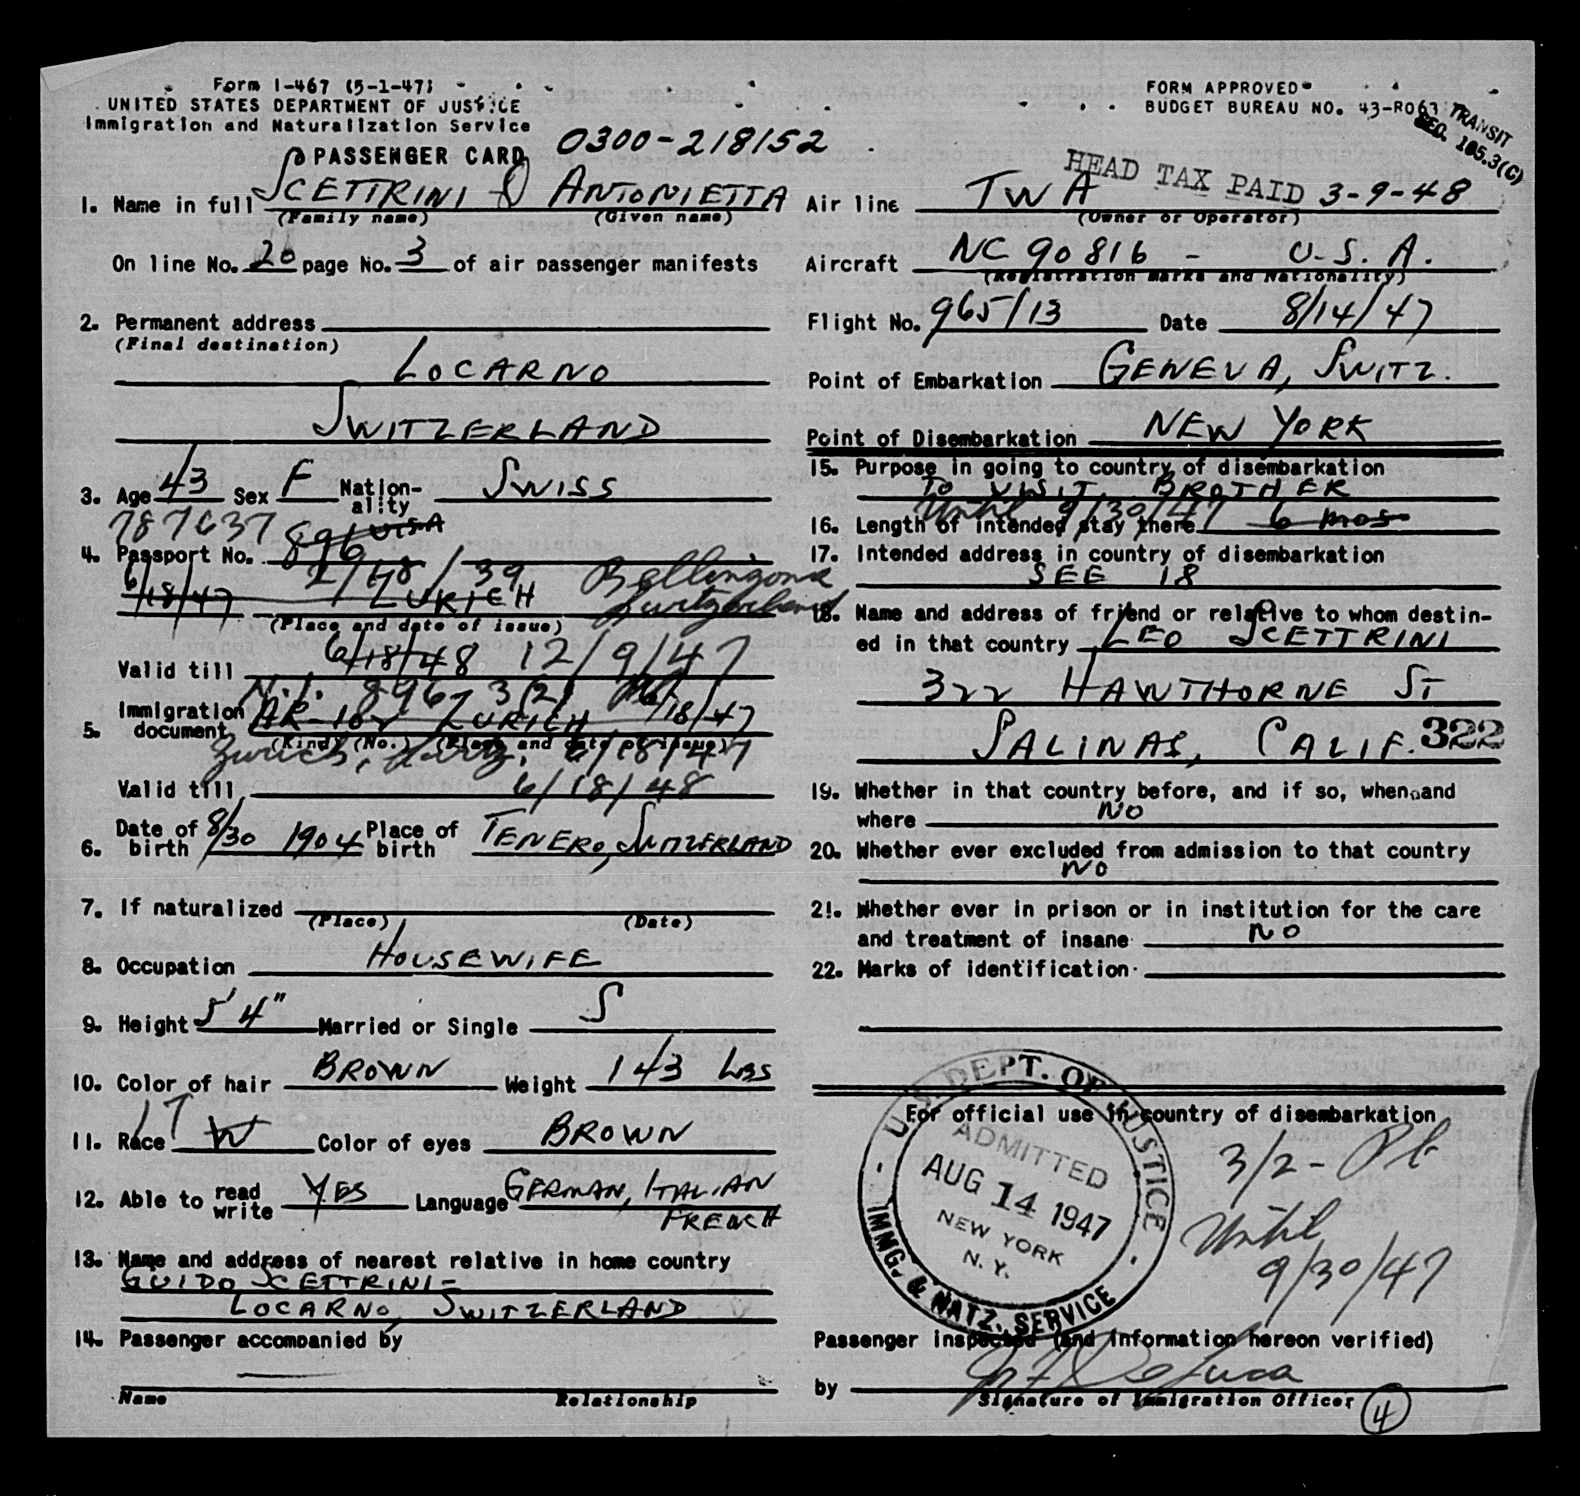 Form I-467 (5-1-47)
UNITED STATES DEPARTMENT OF JUSTICE
Immigration and Naturalization Service
FORM APPROVED
BUDGET BUREAU NO. 43-R063
TRANSIT
SEC. 165.3(C)
PASSENGER CARD 0300-218152
HEAD TAX PAID 3-9-48
1. Name in full SCETTRINI ANTONIETTA
(Family name) (Given name)
On line No. 20 page No. 3 of air passenger manifests
2. Permanent address
(Final destination)
LOCARNO
SWITZERLAND
3. Age 43 Sex F Nationality SWISS
787637 896 VISA
4. Passport No. 2/68/39 Bellinzona
6/18/47 ZURICH Switzerland
(Place and date of issue)
Valid till 6/18/48 12/9/47
N.I. 896 3(2)
5. Immigration document ZURICH 6/18/47
(Kind) (No.) (Place and date of issue)
Zurich, Switz. 6/18/47
Valid till 6/18/48
6. Date of birth 8/30 1904 Place of birth TENERO, SWITZERLAND
7. If naturalized
(Place) (Date)
8. Occupation HOUSEWIFE
9. Height 5' 4" Married or Single S
10. Color of hair BROWN Weight 143 LBS
11. Race W Color of eyes BROWN
12. Able to read write YES Language GERMAN, ITALIAN
FRENCH
13. Name and address of nearest relative in home country
GUIDO SCETTRINI-
LOCARNO, SWITZERLAND
14. Passenger accompanied by
Name Relationship
Air line TWA
(Owner or Operator)
Aircraft NC 90816 - U.S.A.
(Registration marks and Nationality)
Flight No. 965/13 Date 8/14/47
Point of Embarkation GENEVA, SWITZ.
Point of Disembarkation NEW YORK
15. Purpose in going to country of disembarkation
TO VISIT BROTHER
Until 9/30/47
16. Length of intended stay there 6 mos
17. Intended address in country of disembarkation
SEE 18
18. Name and address of friend or relative to whom destin-
ed in that country LEO SCETTRINI
322 HAWTHORNE ST
SALINAS, CALIF. 322
19. Whether in that country before, and if so, when and
where NO
20. Whether ever excluded from admission to that country
NO
21. Whether ever in prison or in institution for the care
and treatment of insane NO
22. Marks of identification
For official use in country of disembarkation
U.S. DEPT. OF JUSTICE
ADMITTED
AUG 14 1947
NEW YORK
N. Y.
IMMG. & NATZ. SERVICE
3/2-
Until
9/30/47
Passenger inspected (and information hereon verified)
by
Signature of Immigration Officer
4